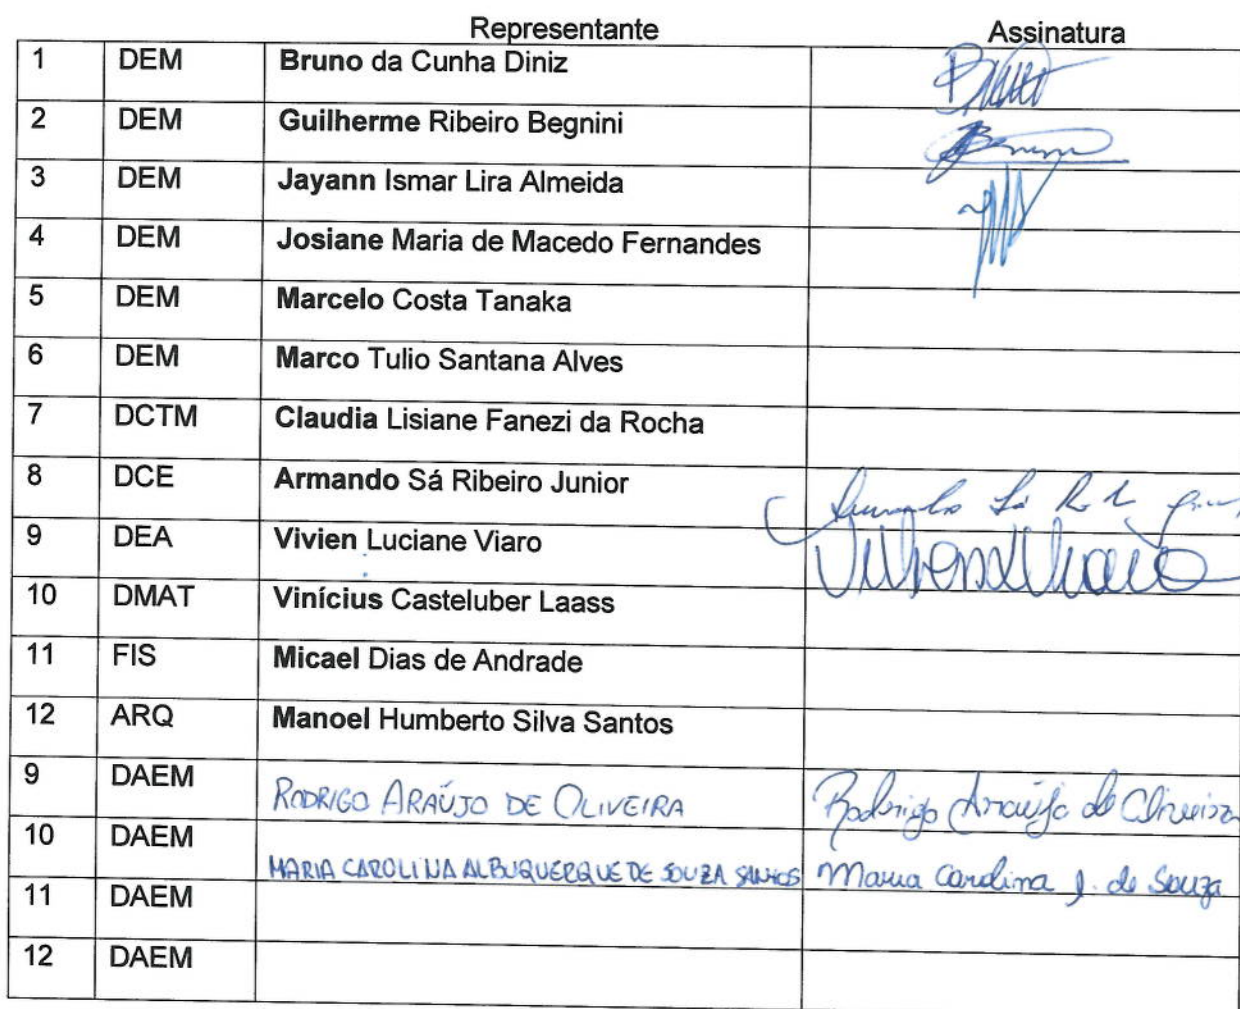 Representante Assinatura
1 DEM Bruno da Cunha Diniz
2 DEM Guilherme Ribeiro Begnini
3 DEM Jayann Ismar Lira Almeida
4 DEM Josiane Maria de Macedo Fernandes
5 DEM Marcelo Costa Tanaka
6 DEM Marco Tulio Santana Alves
7 DCTM Claudia Lisiane Fanezi da Rocha
8 DCE Armando Sá Ribeiro Junior
9 DEA Vivien Luciane Viaro
10 DMAT Vinícius Casteluber Laass
11 FIS Micael Dias de Andrade
12 ARQ Manoel Humberto Silva Santos
9 DAEM RODRIGO ARAÚJO DE OLIVEIRA Rodrigo Araújo de Oliveira
10 DAEM MARIA CAROLINA ALBUQUERQUE DE SOUZA SANTOS Maria Carolina A. de Souza
11 DAEM
12 DAEM